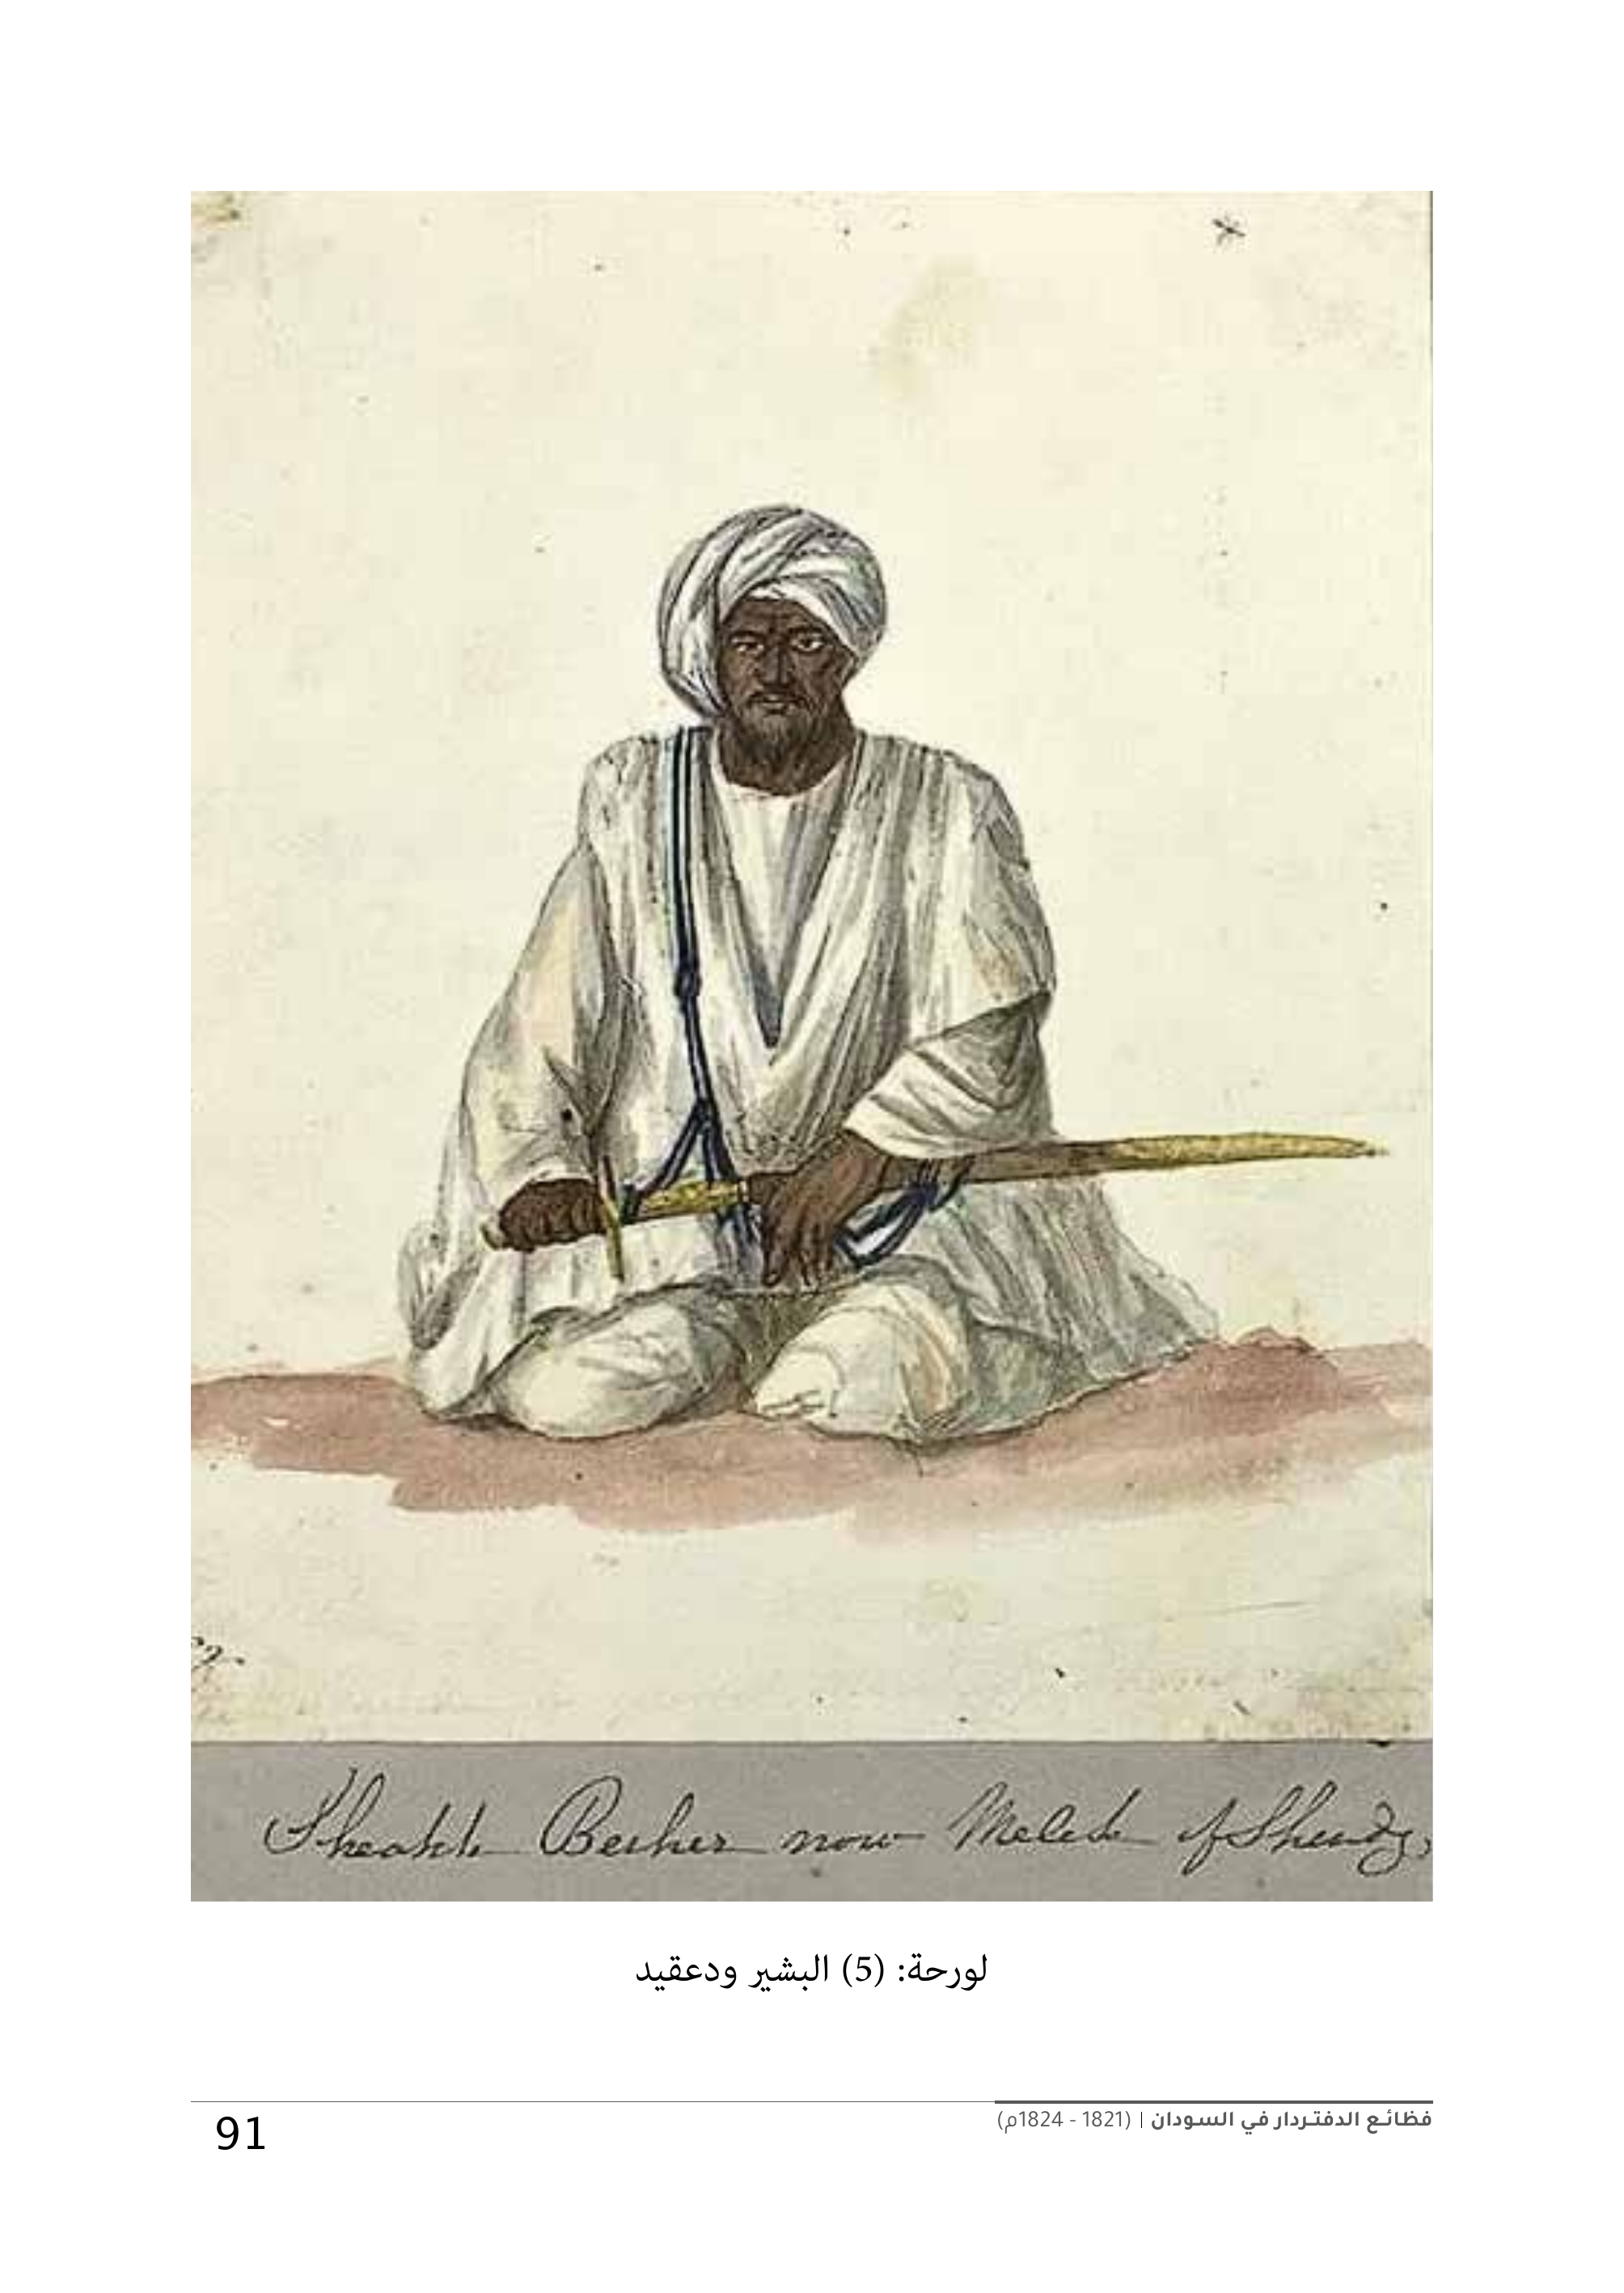 Sheakh Besher now Melek of Shendy,
لورحة: (5) البشير ودعقيد
فظائع الدفتردار في السودان | (1821 - 1824م)
91